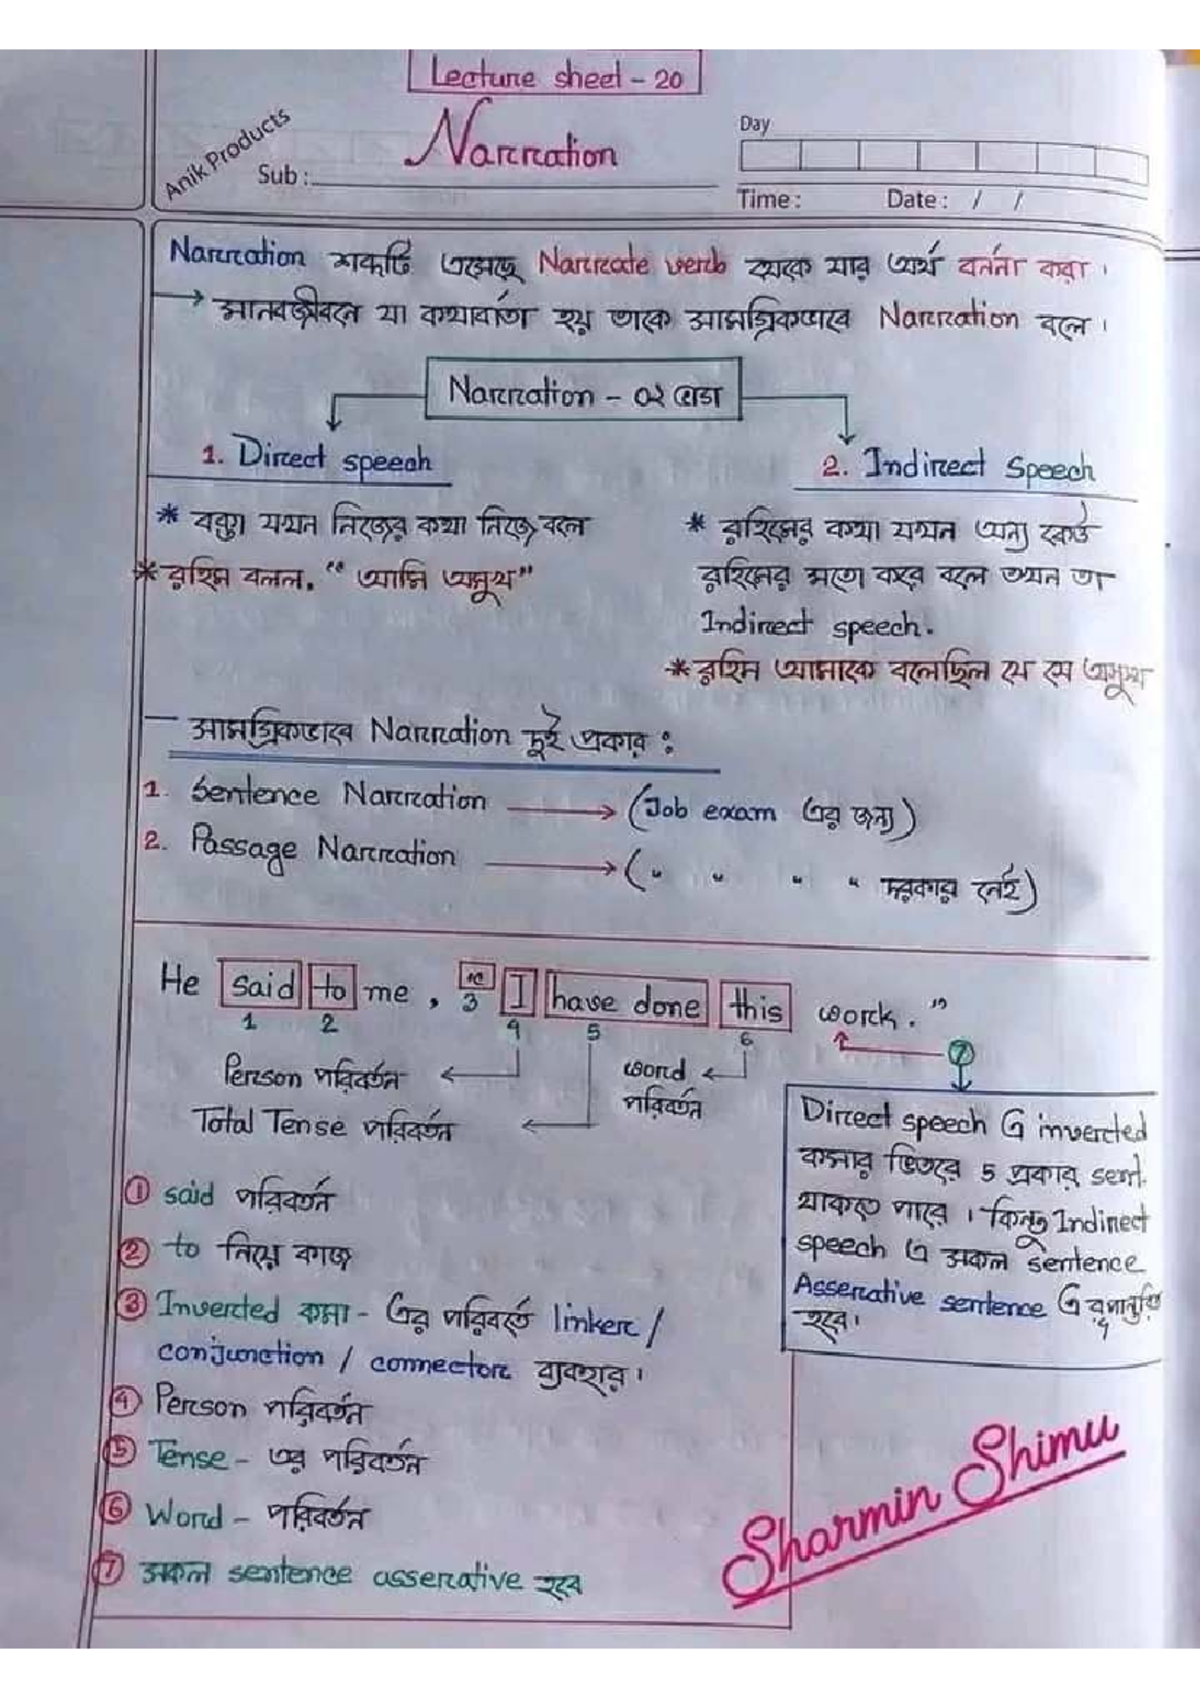 Lecture sheet - 20
Narration
Anik Products
Sub :
Day
Time :
Date : / /
Narration শব্দটি এসেছে Narrate verb থেকে যার অর্থ বর্ননা করা ।
→ মানবজীবনে যা কথাবার্তা হয় তাকে সামগ্রিকভাবে Narration বলে ।
Narration - এর
1. Direct speech
2. Indirect Speech
* বক্তা যখন নিজের কথা নিজে বলে
* রহিম বলল, “ আমি অসুখ”
* রহিমের কথা যখন অন্য কেউ
রহিমের মতো করে বলে তখন তা
Indirect speech.
* রহিম আমাকে বলেছিল যে সে অসুস্থ
— সামগ্রিকভাবে Narration দুই প্রকার :
1. Sentence Narration → (Job exam এর জন্য)
2. Passage Narration → (" " " " দরকার নেই)
He said to me , “ I have done this work . ”
1 2 3 4 5 6 7
Person পরিবর্তন ←
word ←
পরিবর্তন
Total Tense পরিবর্তন ←
Direct speech এ inverted
কমার ভিতরে 5 প্রকার sent.
থাকতে পারে । কিন্তু Indirect
speech এ সকল sentence
Asserative sentence এ রূপান্তরিত
হবে।
① said পরিবর্তন
② to নিয়ে কাজ
③ Inverted কমা - এর পরিবর্তে linker /
conjunction / connector ব্যবহার ।
④ Person পরিবর্তন
⑤ Tense - এর পরিবর্তন
⑥ Word - পরিবর্তন
⑦ সকল sentence asserative হবে
Sharmin Shimu